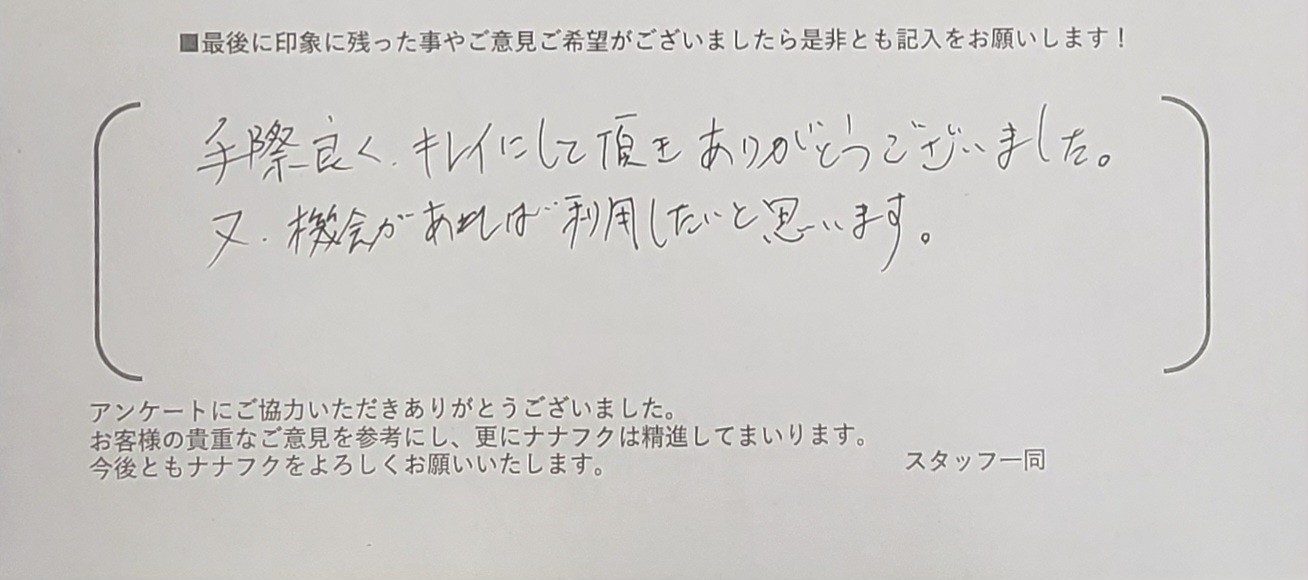 ■最後に印象に残った事やご意見ご希望がございましたら是非とも記入をお願いします！
手際良く、キレイにして頂きありがとうございました。
又、機会があれば利用したいと思います。
アンケートにご協力いただきありがとうございました。
お客様の貴重なご意見を参考にし、更にナナフクは精進してまいります。
今後ともナナフクをよろしくお願いいたします。
スタッフ一同